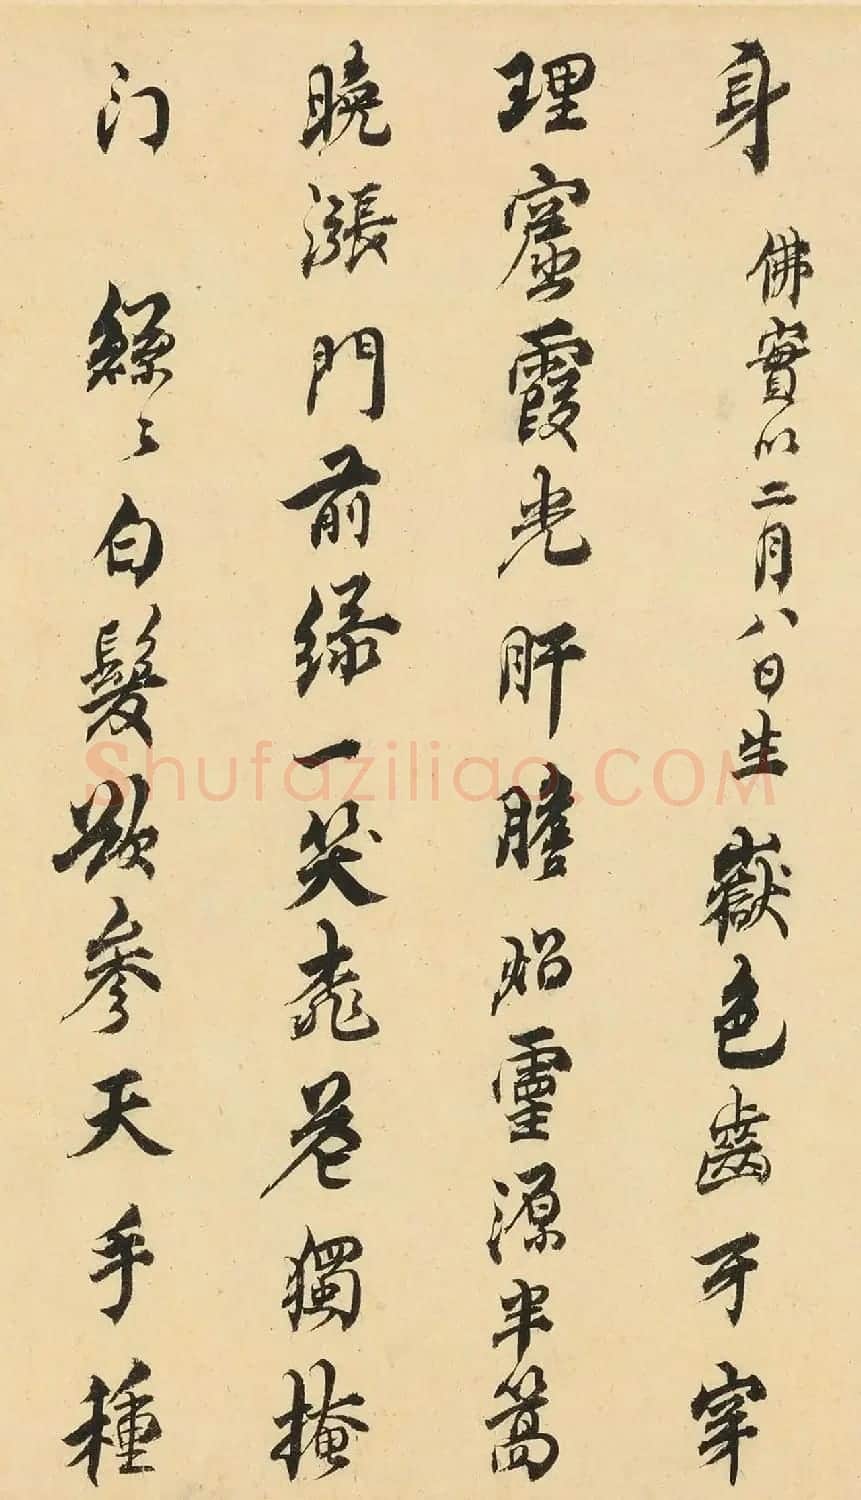 身 佛寶以二月八日生 嶽色齒牙穿
理窟霞光肝膽照靈源半篙
曉漲門前綠一笑桃花獨掩
门 鯀〻白髮照參天手種
Shufaziliao.COM